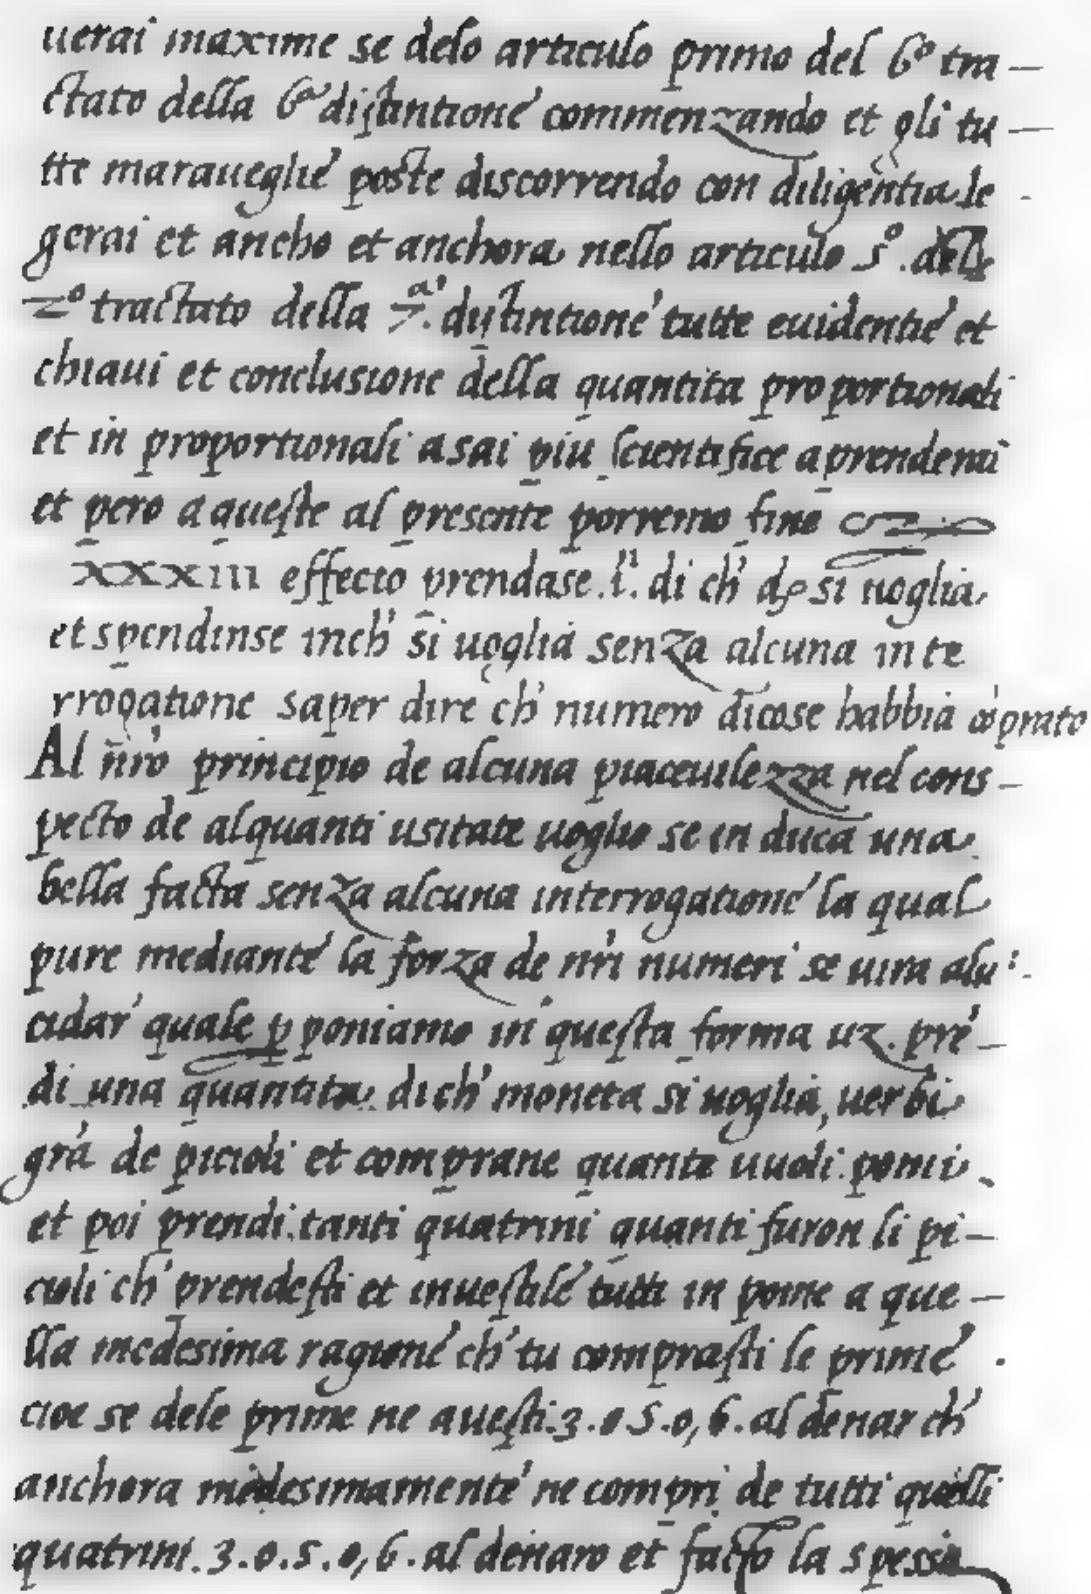 uerai maxime se delo articulo primo del 6º tra —
ctato della 6ª distintione commenzando et gli tu —
tte maraueglie poste discorrendo con diligentia le -
gerai et ancho et anchora nello articulo 5º. del
2º tractato della 7ª. distintione tutte euidentie et
chiaui et conclusione della quantita proportionali
et in proportionali asai piu scientifice aprenderai
et pero a queste al presente porremo fine
XXXIII effecto prendase .lª. di ch' de si uoglia
et spendinse inch' si uoglia senza alcuna inte
rrogatione saper dire ch' numero di cose habbia cōprato
Al nr̄o principio de alcuna piaceuilezza nel cons —
pecto de alquanti usitate uoglio se in duca una
bella facta senza alcuna interrogatione la qual
pure mediante la forza de nr̄i numeri se uira alu -
cidar' quale p poniamo in questa forma uz. pre —
di una quantita di ch' moneta si uoglia, uerbi
grā de picioli et comprane quante uuoli pomi
et poi prendi tanti quatrini quanti furon li pi —
cioli ch' prendesti et inuestile tutti in pome a que —
lla medesima ragione ch' tu comprasti le prime .
cioe se dele prime ne auesti .3. o 5. o, 6. al denar ch'
anchora medesimamente ne compri de tutti quelli
quatrini .3. o. 5. o, 6. al denaro et facto la spessa